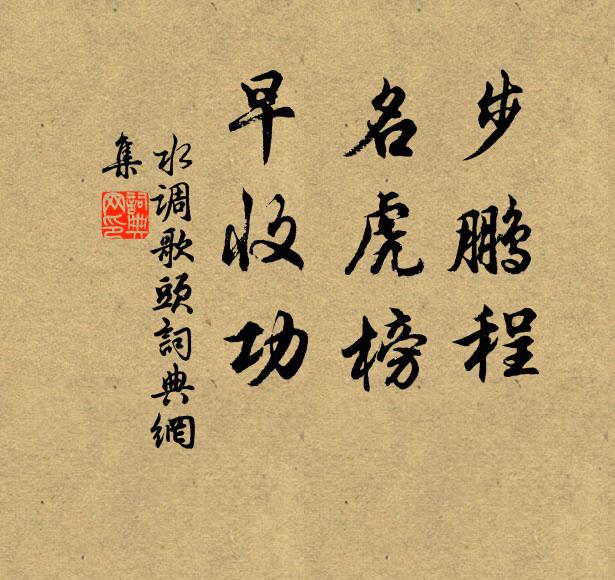 步鹏程
名虎榜
早收功
水调歌頭詞典網
集
詞典
网印